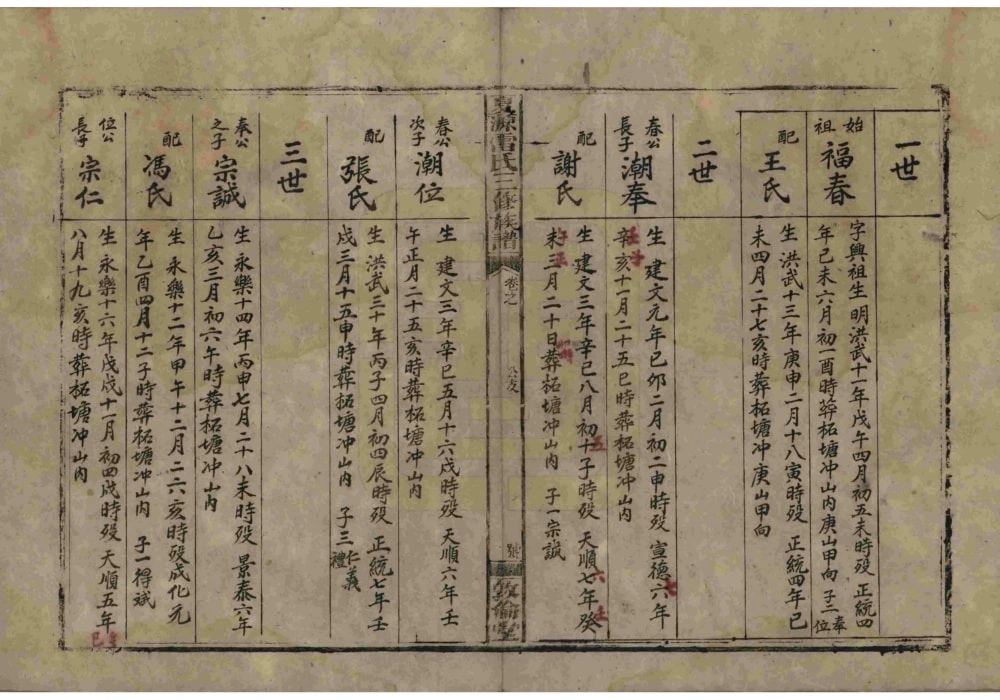 一世
始祖 福春
字興祖生明洪武十一年戊午四月初五未時殁 正統四
年己未六月初一酉時葬柘塘冲山内庚山甲向 子二 奉 位
配 王氏
生 洪武十三年庚申二月十八寅時殁 正統四年己
未四月二十七亥時葬柘塘冲庚山甲向
二世
春公長子 潮奉
生 建文元年己卯二月初二申時殁 宣德六年
辛亥十一月二十五巳時葬柘塘冲山内
配 謝氏
生 建文三年辛巳八月初十子時殁 天順七年癸
未三月二十日葬柘塘冲山内 子一宗誠
源雷氏三修族譜
卷之
敦倫堂
春公次子 潮位
生 建文三年辛巳五月十六戌時殁 天順六年壬
午正月二十五亥時葬柘塘冲山内
配 張氏
生 洪武三十年丙子四月初四辰時殁 正統七年壬
戌三月十五申時葬柘塘冲山内 子三 仁 義 禮
三世
奉公之子 宗誠
生 永樂十四年丙申七月二十八未時殁 景泰六年
乙亥三月初六午時葬柘塘冲山内
配 馮氏
生 永樂十二年甲午十二月二六亥時殁成化元
年乙酉四月十二子時葬柘塘冲山内 子一得斌
位公長子 宗仁
生 永樂十六年戊戌十一月初四戌時殁 天順五年
八月十九亥時葬柘塘冲山内